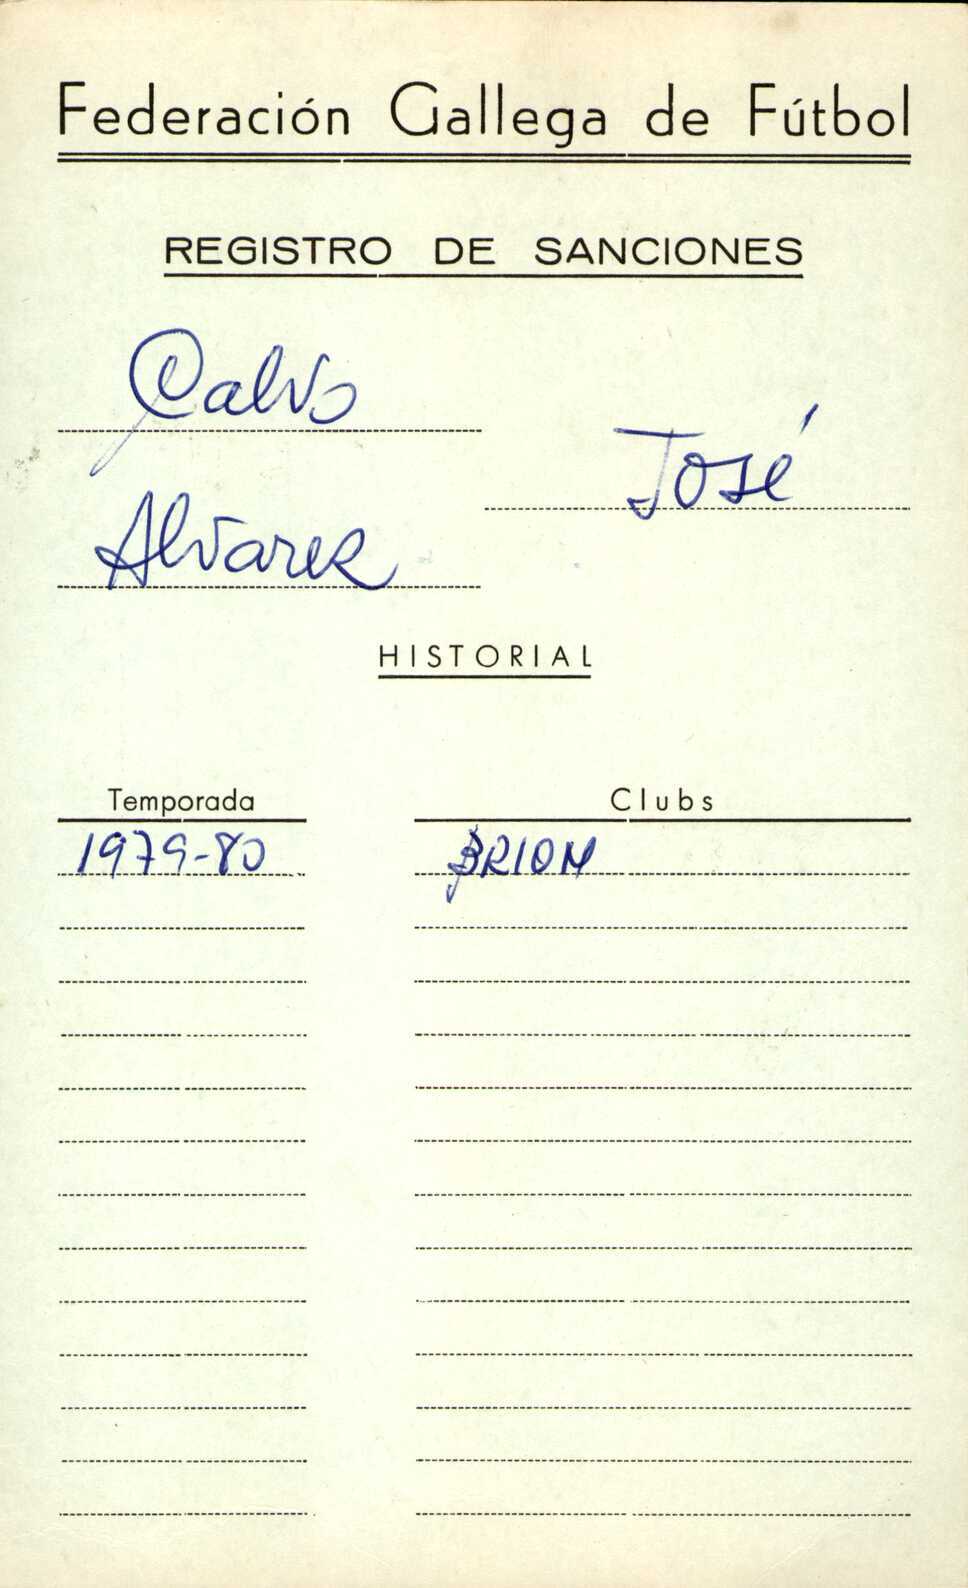 Federación Gallega de Fútbol
REGISTRO DE SANCIONES
Calvo
José
Alvarez
HISTORIAL
Temporada Clubs
1979-80 BRION